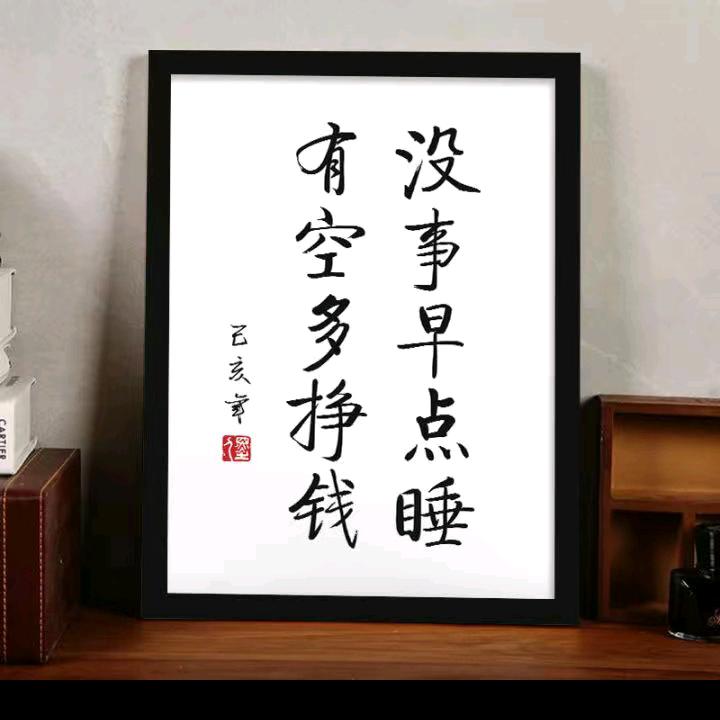 没事早点睡
有空多挣钱
己亥年
CARTIER